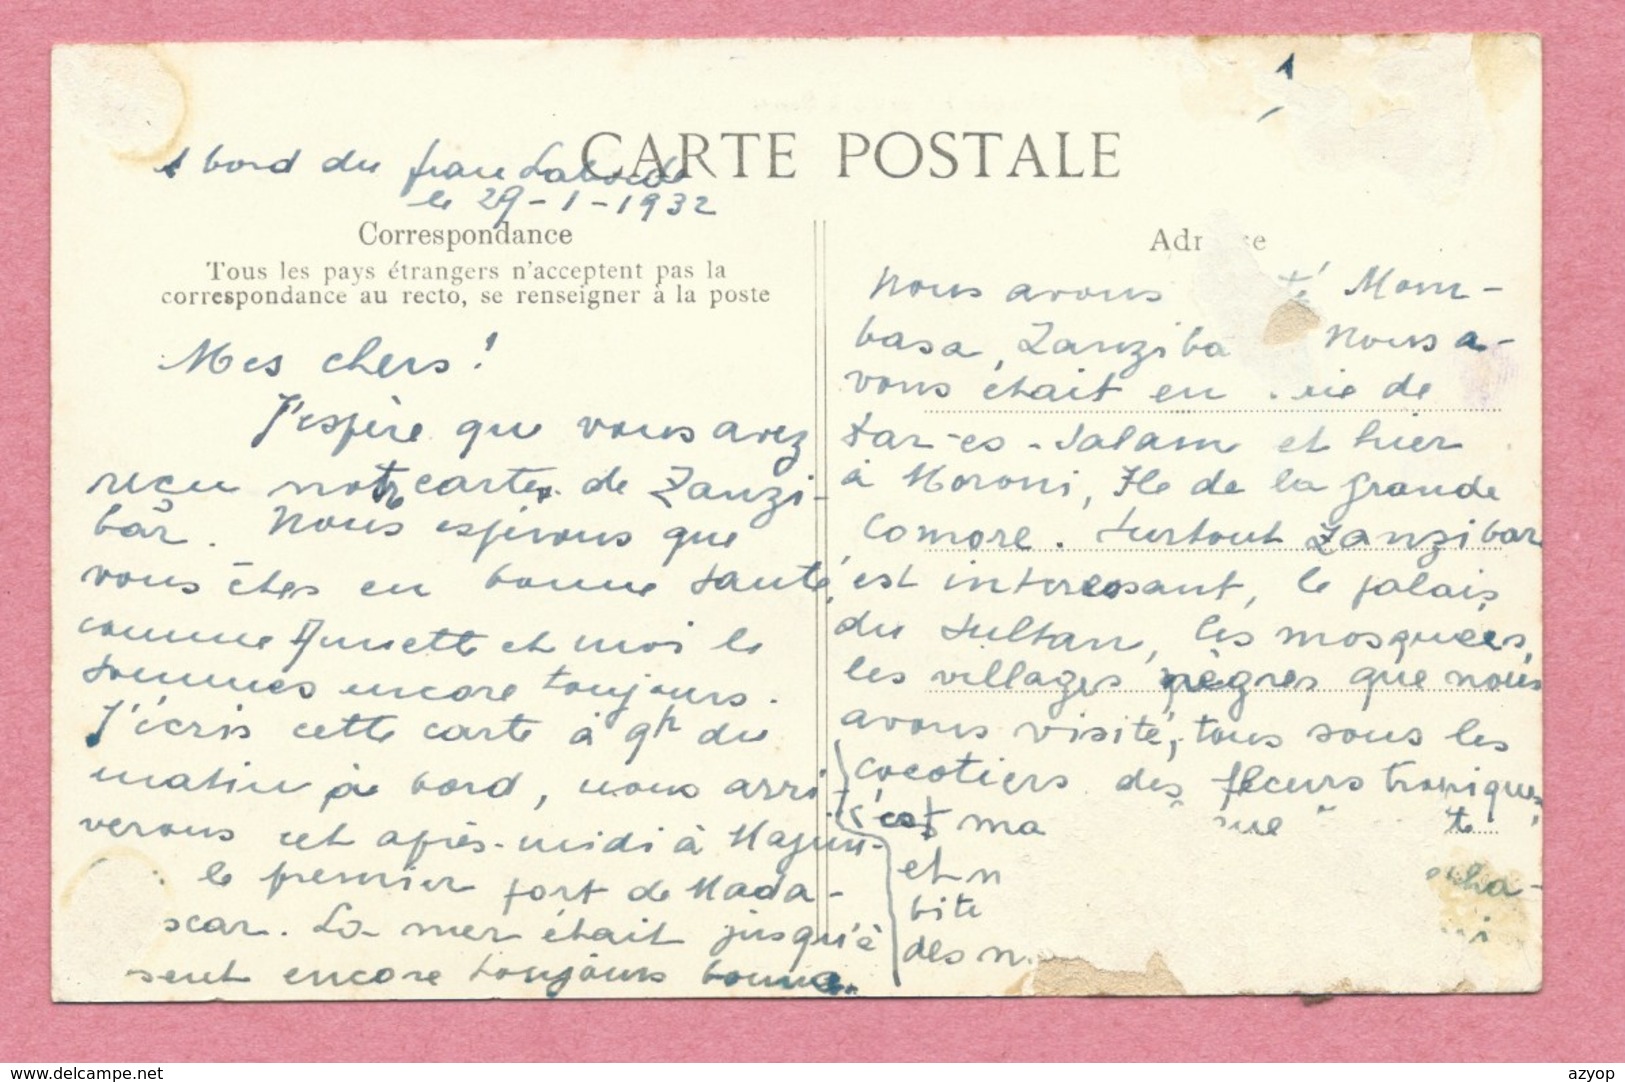 CARTE POSTALE
A bord du Jean Laborde
le 29-1-1932
Correspondance
Tous les pays étrangers n'acceptent pas la
correspondance au recto, se renseigner à la poste
Mes chers!
J'espère que vous avez
reçu notre carte de Zanzi-
bar. Nous espérons que
vous êtes en bonne santé,
comme Annette et moi le
sommes encore toujours.
J'écris cette carte à 9h du
matin à bord, nous arri-
verons cet après-midi à Majun-
le premier port de Mada-
scar. La mer était jusqu'à
sent encore toujours bonne.
Adr se
Nous avons té Mom-
basa, Zanziba Nous a-
vons était en de
Dar-es-Salam et hier
à Moroni, Ile de la grande
Comore. Surtout Zanzibar
est interessant, le palais
du Sultan, les mosquees,
les villages nègres que nous
avons visité, tous sous les
cocotiers des fleurs tropiques,
c'est ma que te
et n cha-
bite i
des n
www.delcampe.net
azyop